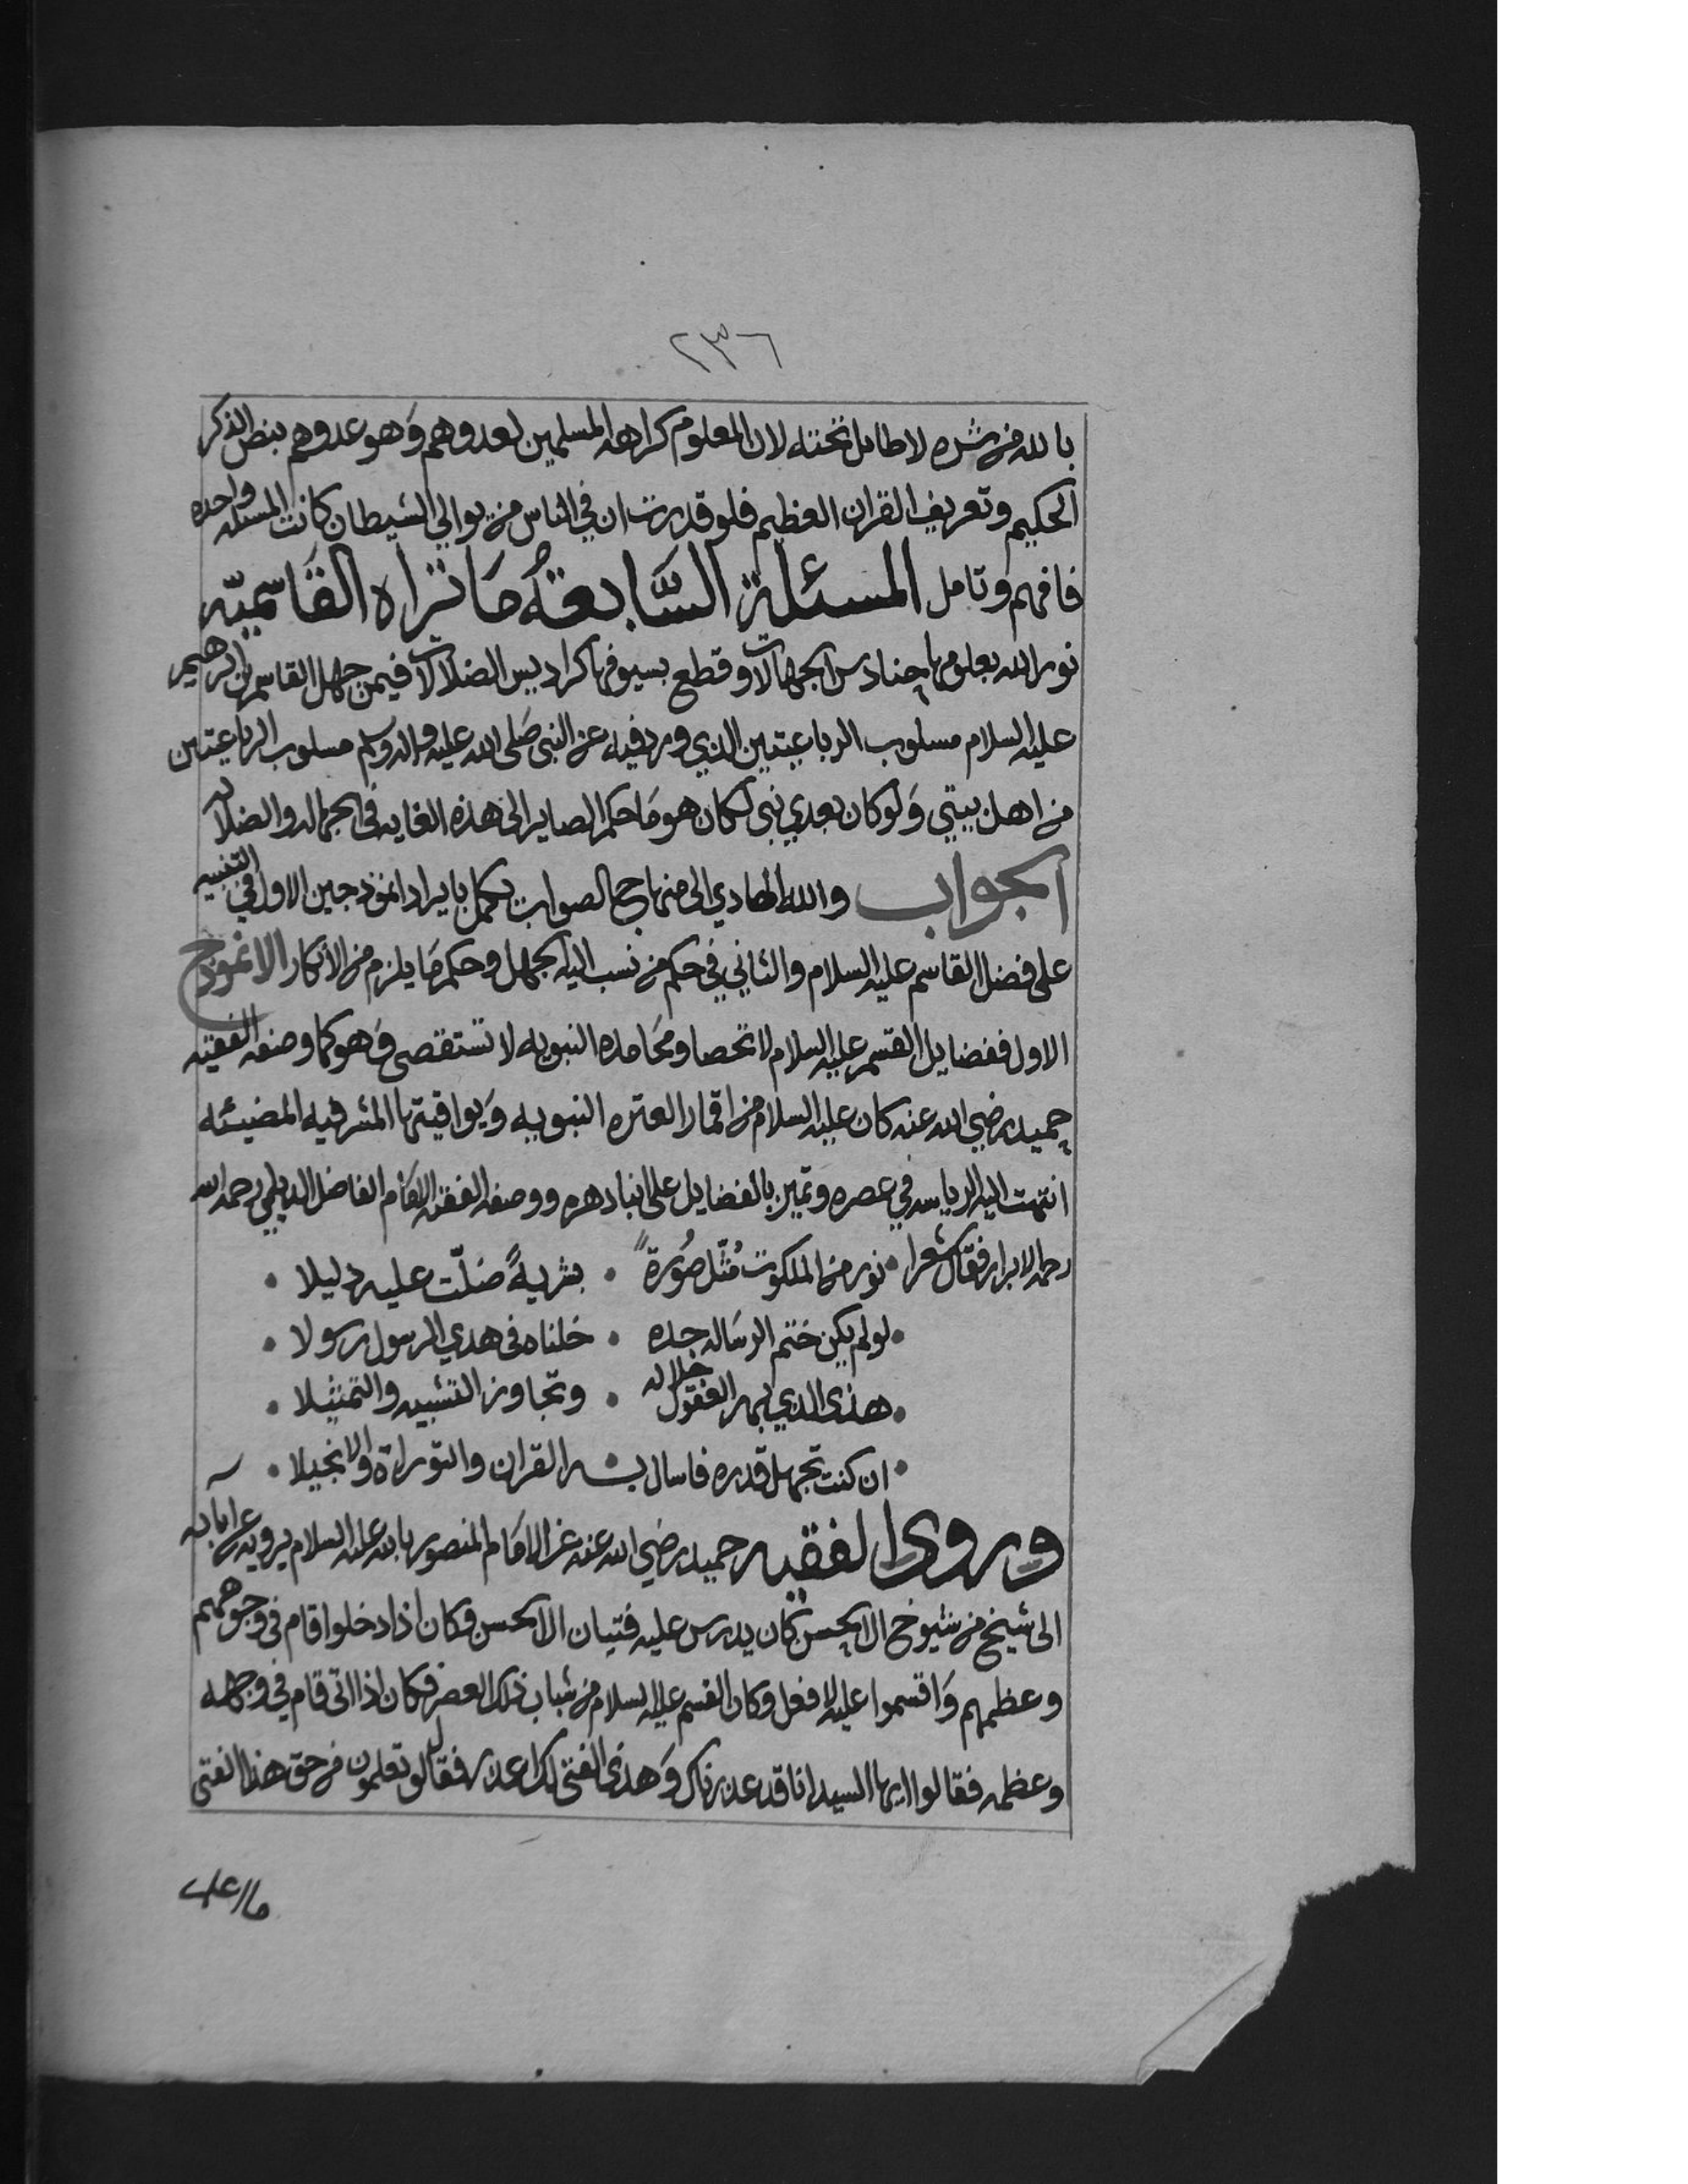 ٢٣٦
بالله من شره لا طايل تحته لان المعلوم كراهه المسلمين لعدوهم وَهو عدوهم بنص الذكر
الحكيم وتعريف القران العظيم فلو قدرت ان في الناس من يوالي الشيطان كانت المسئله واحده
فافهم وتامل المسئلة السَّابعةُ مَا تراه القَاسميّه
نور الله بعلومها حنادس الجهالات وقطع بسيوفها كراديس الضلالات فيمن جهل القاسم بن ابرهيم
عليه السلام مسلوب الرباعيتين الذي ورد فيه عن النبي صَلى الله عليه واله وسلم مسلوب الرباعيتين
من اهل بيتي وَلو كان بعدي نبي لكان هو مَا حكم الصاير الى هذه الغايه في الجهاله والضلاله
الجواب والله الهادي الى منهاج الصواب يكمل بايراد انموذجين الاول في التنبيه
على فضل القاسم عليه السلام والثاني في حكم من نسب اليه الجهل وحكم مَا يلزم من الانكار الانموذج
الاول ففضايل القسم عليه السلام لا تحصا ومحَامده النبويه لا تستقصى وَهو كما وصفه الفقيه
حميد رضي الله عنه كان عليه السلام من اقمار العتره النبويه وَيواقيتها المشرقيه المضيئه
انتهت اليه الرياسه في عصره وتميز بالفضايل على ابنا دهره ووصفه الفقيه الامَام الفاضل الديلمي رحمه الله
رحمه الابرار فقال شعرا • نور من الملكوت مُثّل صُورةً • بشريةً ضلّت عليه دليلا •
• لو لم يكن ختم الرسَاله جده • خلناه في هدي الرسول رسولا •
• هذى الذي بهر العقول جلاله • وتجاوز التشبيه والتمثيلا •
• ان كنت تجهل قدره فاسال به القران والتوراة والانجيلا •
وروى الفقيه حميد رضي الله عنه عن الامَام المنصور بالله عليه السلام يرويه عن آبائه
الى شيخ من شيوخ ال الحسن كان يدرس عليه فتيان ال الحسن وكان اذا دخلوا قام في وجوههم
وعظمهم وَاقسموا عليه لا فعل وكان القسم عليه السلام من شباب ذلك العصر فكان اذا اتى قام في وجهه
وعظمه فقالوا ايها السيد انا قد عذرناك وَهذى الفتى لك اعذر فقال لو تعلمون من حق هذا الفتى